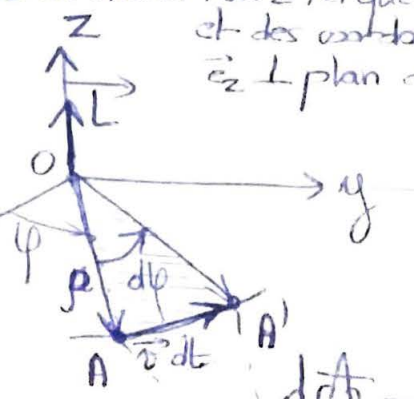 et des
e⃗z ⊥ plan
Z
L
O
y
φ
ρ
dφ
A'
v⃗ dt
A